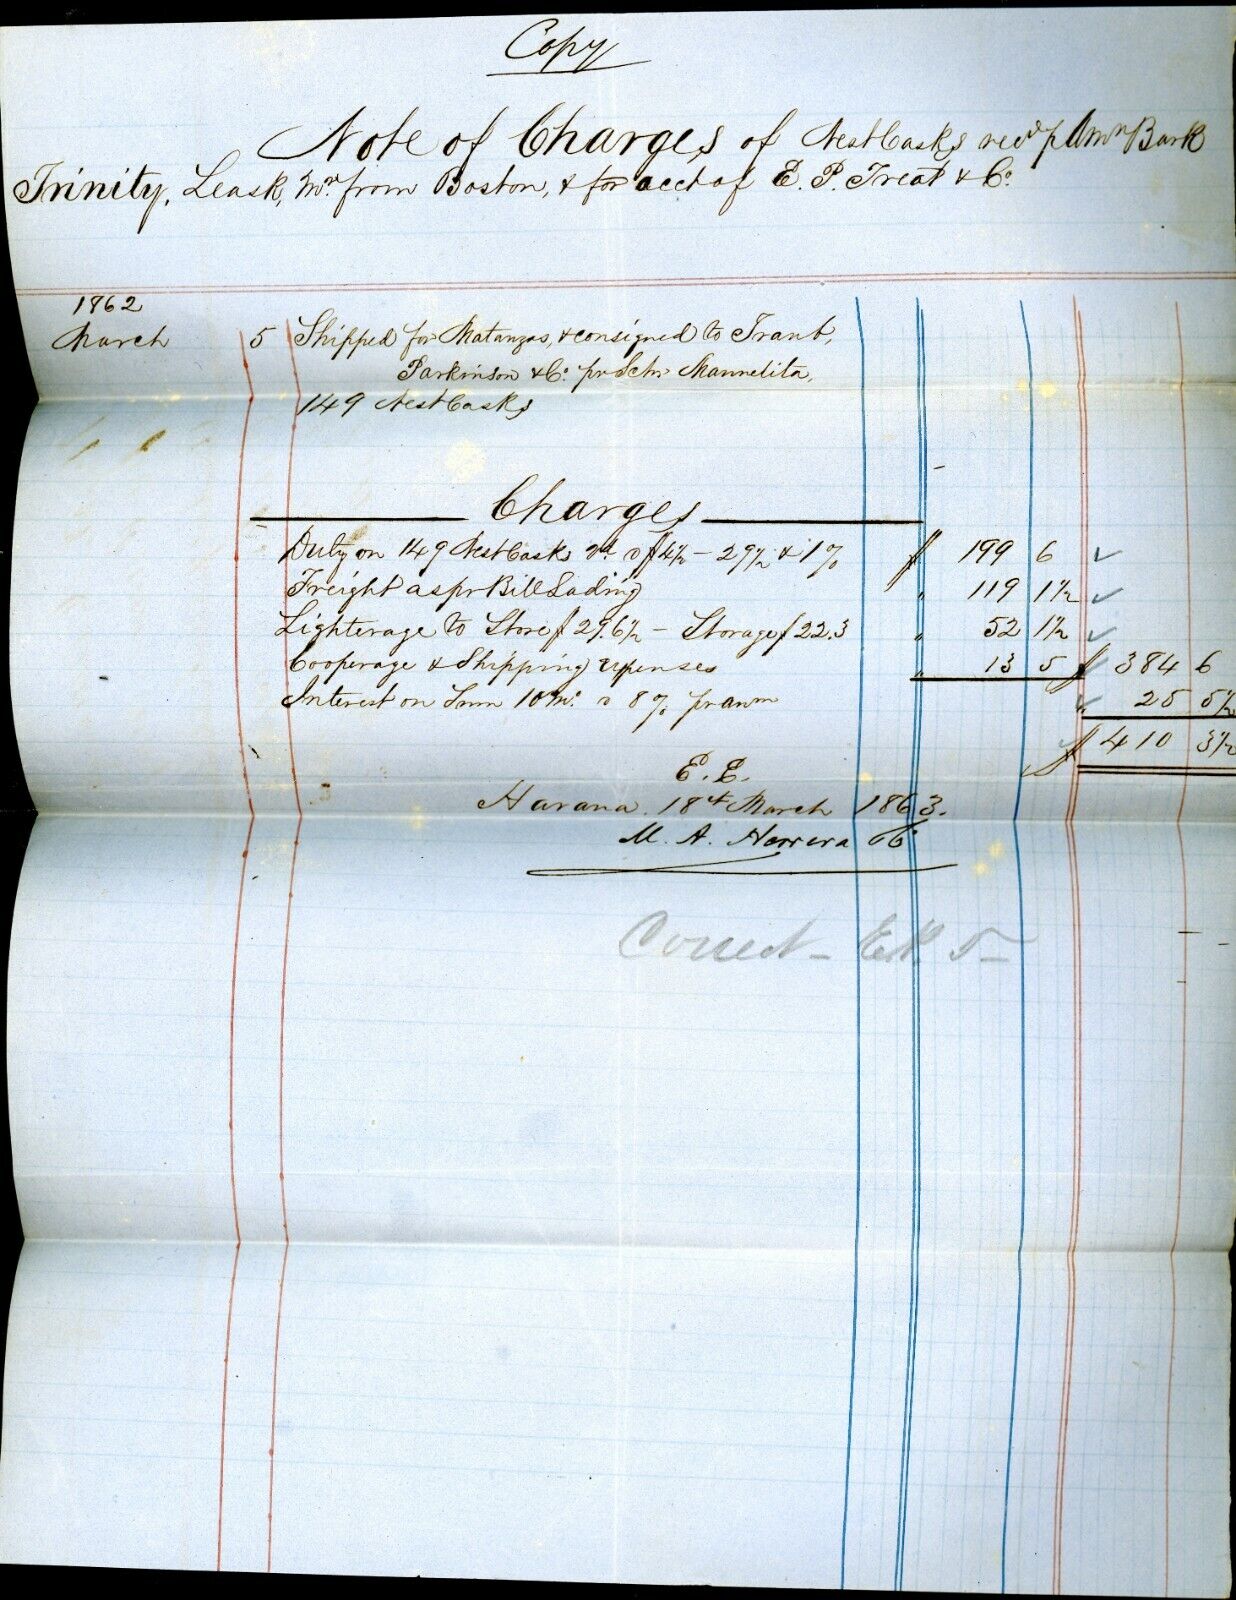 Copy
Note of Charges of Nest Casks rec.d p Amn Bark
Trinity, Leask, Mr. from Boston, & for acct of E. P. Treat & Co.
1862
March 5 Shipped for Matanzas, & consigned to Trant,
Parkinson & Co. pr Schr Manuelita,
149 Nest Casks
Charges
Duty on 149 Nest Casks vd. @ $4½ - 29½ & 1% $ 199 6
Freight as pr Bill Lading " 119 1½
Lighterage to Store $29.6½ - Storage $22.3 " 52 1½
Cooperage & Shipping expenses " 13 5 $ 384 6
Interest on Sum 10 mo. @ 8% pr ann " 25 5½
$ 410 3½
E. E.
Havana 18th March 1863.
M. A. Herrera & Co
Correct - E.P. T-